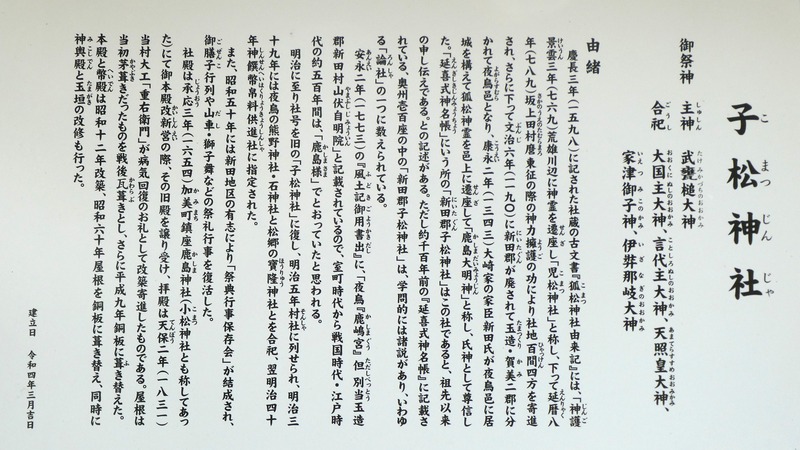 子松神社
御祭神　主神　武甕槌大神
合祀　大国主大神、言代主大神、天照皇大神、
家津御子神、伊弉那岐大神
由緒
慶長三年(一五九八)に記された社蔵の古文書『狐松神社由来記』には、「神護
景雲三年(七六九)荒雄川辺に神霊を遷座し『児松神社』と称し、下って延暦八
年(七八九)坂上田村麿東征の際の神力擁護の功により社地百間四方を寄進
され、さらに下って文治六年(一一九〇)に新田郡が廃されて玉造・賀美二郡に分
かれて夜烏邑となり、康永二年(一三四三)大崎家の家臣新田氏が夜烏邑に居
城を構えて狐松神霊を邑上に遷座して『鹿島大明神』と称し、氏神として尊信し
た。『延喜式神名帳』にいう所の『新田郡子松神社』はこの社であると、祖先以来
の申し伝えである。」との記述がある。ただし約千百年前の『延喜式神名帳』に記載さ
れている、奥州壱百座の中の「新田郡子松神社」は、学問的には諸説があり、いわゆ
る「論社」の一つに数えられている。
安永二年(一七七三)の『風土記御用書出』に、「夜烏『鹿嶋宮』但別当玉造
郡新田村山伏自明院」と記載されているので、室町時代から戦国時代・江戸時
代の約五百年間は、「鹿島様」でとおっていたと思われる。
明治に至り社号を旧の「子松神社」に復し、明治五年村社に列せられ、明治三
十九年には夜烏の熊野神社・石神社と松郷の寶隆神社とを合祀、翌明治四十
年神饌幣帛料供進社に指定された。
また、昭和五十年には新田地区の有志により「祭典行事保存会」が結成され、
御膳子行列や山車・獅子舞などの祭礼行事を復活した。
社殿は承応三年(一六五四)加美町鎮座鹿島神社(小松神社とも称してあっ
た)にて御本殿改新営の際、その旧殿を譲り受け、拝殿は天保二年(一八三一)
当村大工「重右衛門」が病気回復のお礼として改築寄進したものである。屋根は
当初茅葺きだったものを戦後瓦葺きとし、さらに平成九年銅板に葺き替えた。
本殿と幣殿は昭和十二年改築、昭和六十年屋根を銅板に葺き替え、同時に
神輿殿と玉垣の改修も行った。
建立日　令和四年三月吉日